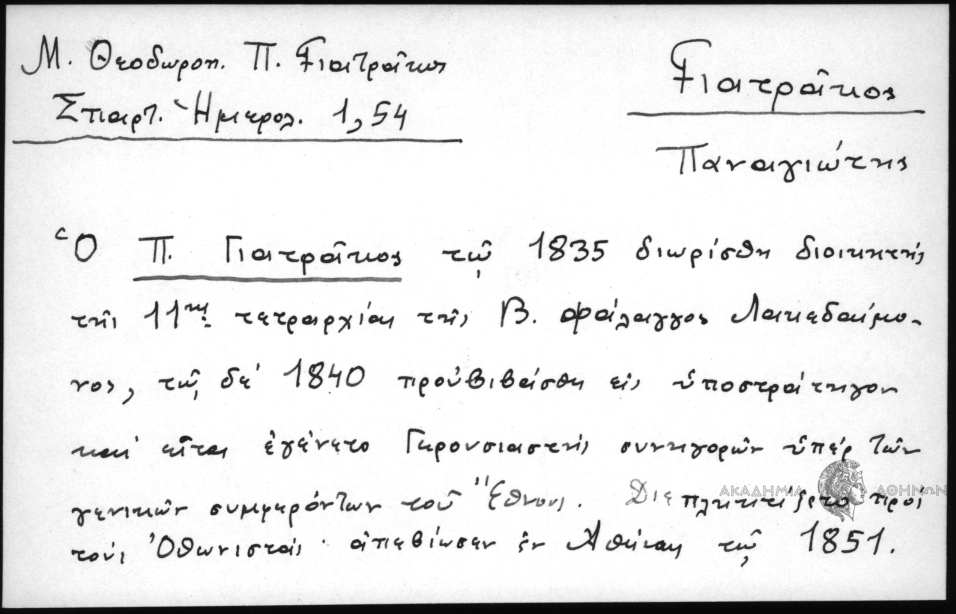 Μ. Θεοδωροπ. Π. Γιατρᾶκος
Σπαρτ. Ἡμερολ. 1,54
Γιατρᾶκος
Παναγιώτης
Ὁ Π. Γιατρᾶκος τῷ 1835 διωρίσθη διοικητής
τῆς 11ης τετραρχίας τῆς Β. φάλαγγος Λακεδαίμο-
νος, τῷ δέ 1840 προὐβιβάσθη εἰς ὑποστράτηγον
καί εἶτα ἐγένετο Γερουσιαστής συνηγορῶν ὑπέρ τῶν
γενικῶν συμφερόντων τοῦ Ἔθνους. Διεπληκτίζετο πρός
τούς Ὀθωνιστάς· ἀπεβίωσεν ἐν Ἀθήναις τῷ 1851.
ΑΚΑΔΗΜΙΑ ΑΘΗΝΩΝ